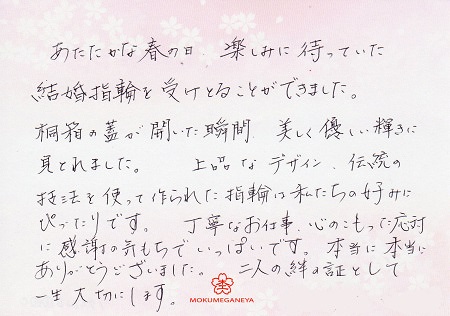 あたたかな春の日、楽しみに待っていた
結婚指輪を受けとることができました。
桐箱の蓋が開いた瞬間、美しく優しい輝きに
見とれました。 上品なデザイン、伝統の
技法を使って作られた指輪は私たちの好みに
ぴったりです。 丁寧なお仕事、心のこもった応対
に感謝の気もちでいっぱいです。本当に本当に
ありがとうございました。 二人の絆の証として
一生大切にします。
MOKUMEGANEYA